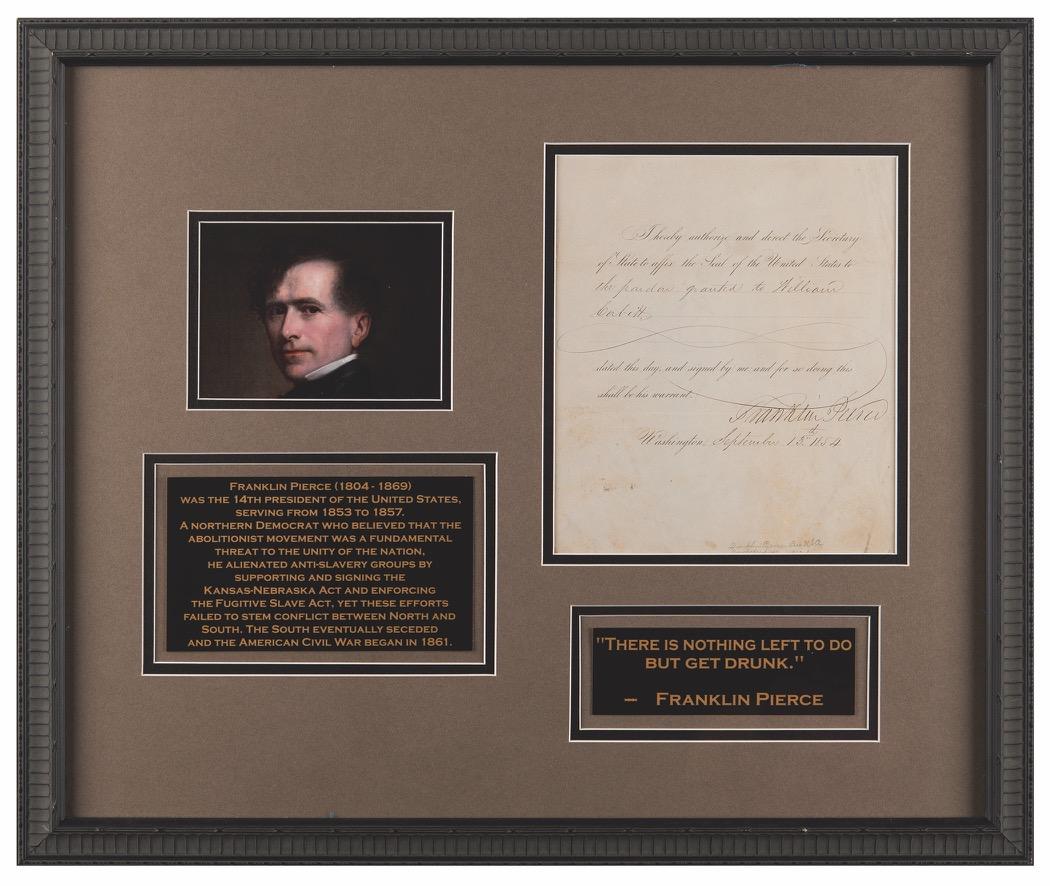 I hereby authorize and direct the Secretary
of State to affix the Seal of the United States to
the pardon granted to William
Corbitt,
dated this day, and signed by me: and for so doing this
shall be his warrant.
Franklin Pierce
Washington, September 13th 1854
FRANKLIN PIERCE (1804 - 1869)
WAS THE 14TH PRESIDENT OF THE UNITED STATES,
SERVING FROM 1853 TO 1857.
A NORTHERN DEMOCRAT WHO BELIEVED THAT THE
ABOLITIONIST MOVEMENT WAS A FUNDAMENTAL
THREAT TO THE UNITY OF THE NATION,
HE ALIENATED ANTI-SLAVERY GROUPS BY
SUPPORTING AND SIGNING THE
KANSAS-NEBRASKA ACT AND ENFORCING
THE FUGITIVE SLAVE ACT, YET THESE EFFORTS
FAILED TO STEM CONFLICT BETWEEN NORTH AND
SOUTH. THE SOUTH EVENTUALLY SECEDED
AND THE AMERICAN CIVIL WAR BEGAN IN 1861.
"THERE IS NOTHING LEFT TO DO
BUT GET DRUNK."
– FRANKLIN PIERCE